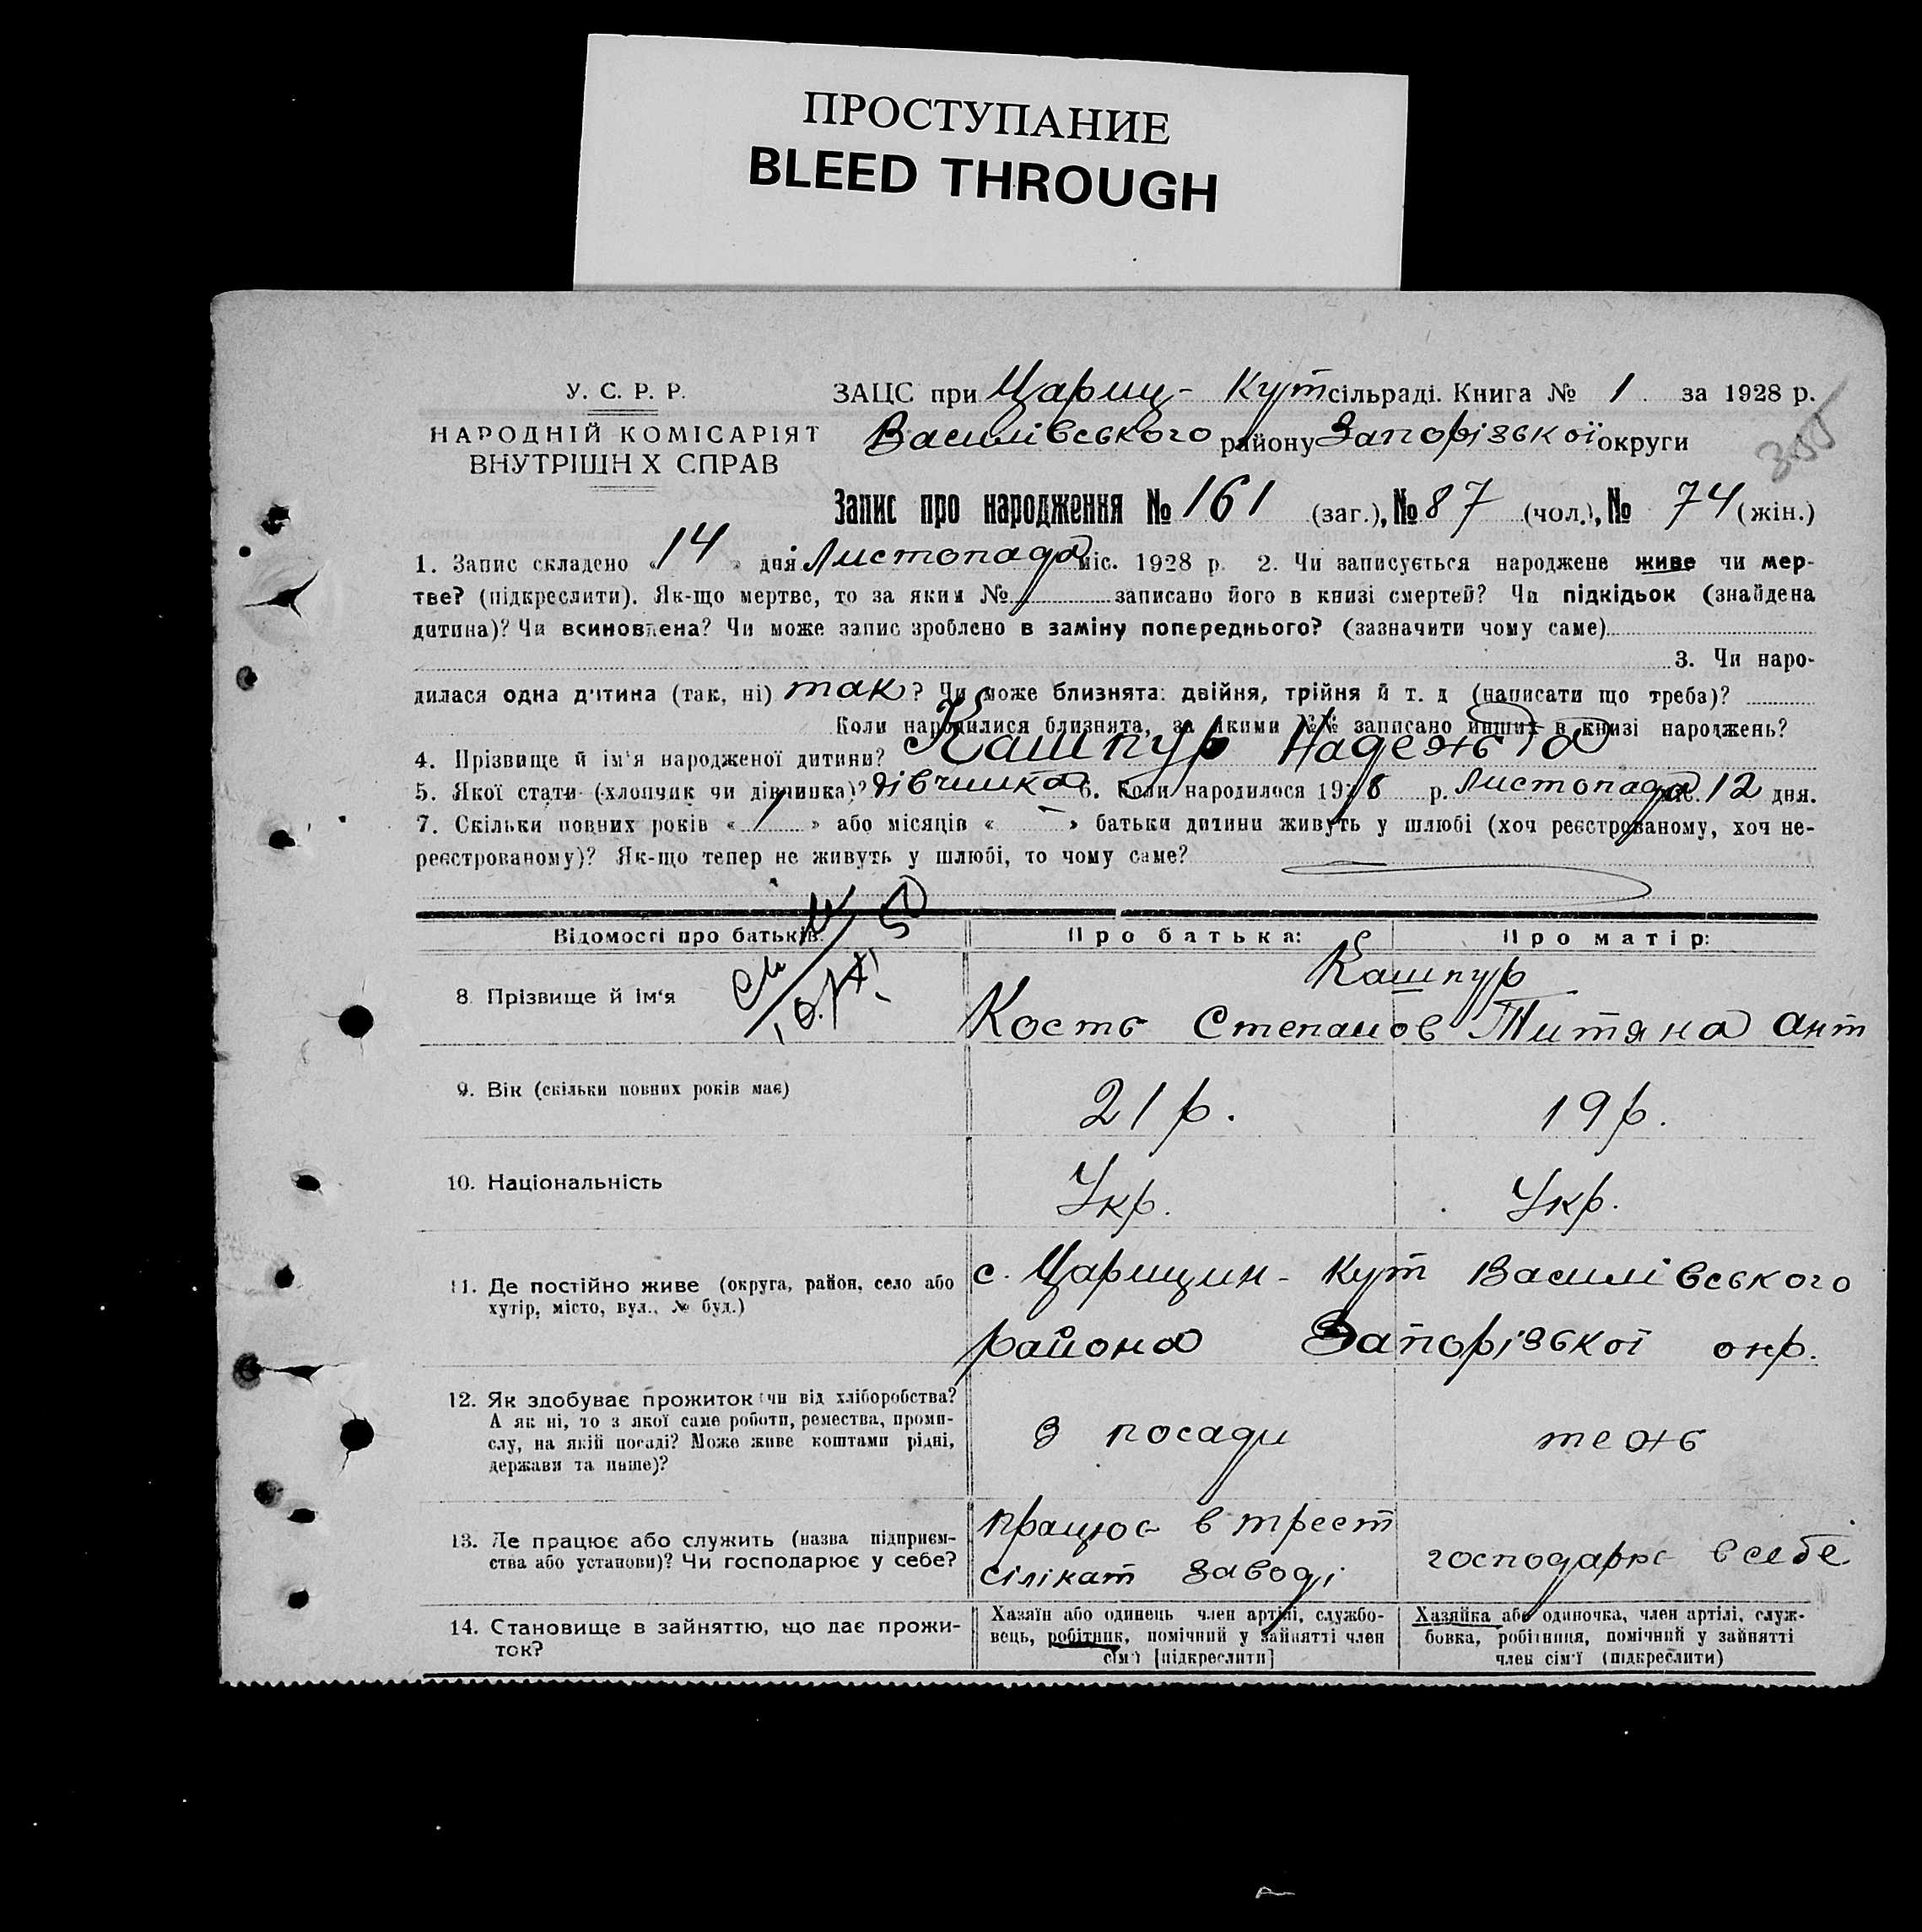 ПРОСТУПАНИЕ
BLEED THROUGH
У. С. Р. Р.
НАРОДНІЙ КОМІСАРІЯТ
ВНУТРІШН Х СПРАВ
ЗАЦС при Цариц- Кут сільраді. Книга № 1 за 1928 р.
Василівського району Запорізької округи
Запис про народження № 161 (заг.), № 87 (чол.), № 74 (жін.)
1. Запис складено « 14 » дня Листопада міс. 1928 р. 2. Чи записується народжене живе чи мер-
тве? (підкреслити). Як-що мертве, то за яким № записано його в книзі смертей? Чи підкідьок (знайдена
дитина)? Чи всиновлена? Чи може запис зроблено в заміну попереднього? (зазначити чому саме)
3. Чи наро-
дилася одна дитина (так, ні) так ? Чи може близнята: двійня, трійня й т. д (написати що треба)?
Коли народилися близнята, за якими №№ записано инших в книзі народжень?
4. Прізвище й ім'я народженої дитини? Кашпур Надежда
5. Якої стати (хлопчик чи дівчинка)? дівчинка 6. Коли народилося 1928 р. Листопада міс. 12 дня.
7. Скільки повних років « 1 » або місяців « - » батьки дитини живуть у шлюбі (хоч реєстрованому, хоч не-
реєстрованому)? Як-що тепер не живуть у шлюбі, то чому саме?
Відомості про батьків: Про батька: Про матір:
Кашпур
8. Прізвище й ім'я Кость Степанов Титяна Ант
9. Вік (скільки повних років має) 21 р. 19 р.
10. Національність Укр. Укр.
11. Де постійно живе (округа, район, село або
хутір, місто, вул., № буд.)
с. Царицин- Кут Василівського
района Запорізької окр.
12. Як здобуває прожиток (чи від хліборобства?
А як ні, то з якої саме роботи, ремества, проми-
слу, на якій посаді? Може живе коштами рідні,
держави та инше)?
З посади тежь
13. Де працює або служить (назва підприєм-
ства або установи)? Чи господарює у себе?
працює в трест
сілікат заводі
господарює в себе
14. Становище в зайняттю, що дає прожи-
ток?
Хазяїн або одинець член артілі, службо-
вець, робітник, помічний у зайнятті член
сім'ї [підкреслити]
Хазяйка або одиночка, член артілі, служ-
бовка, робітниця, помічний у зайнятті
член сім'ї (підкреслити)